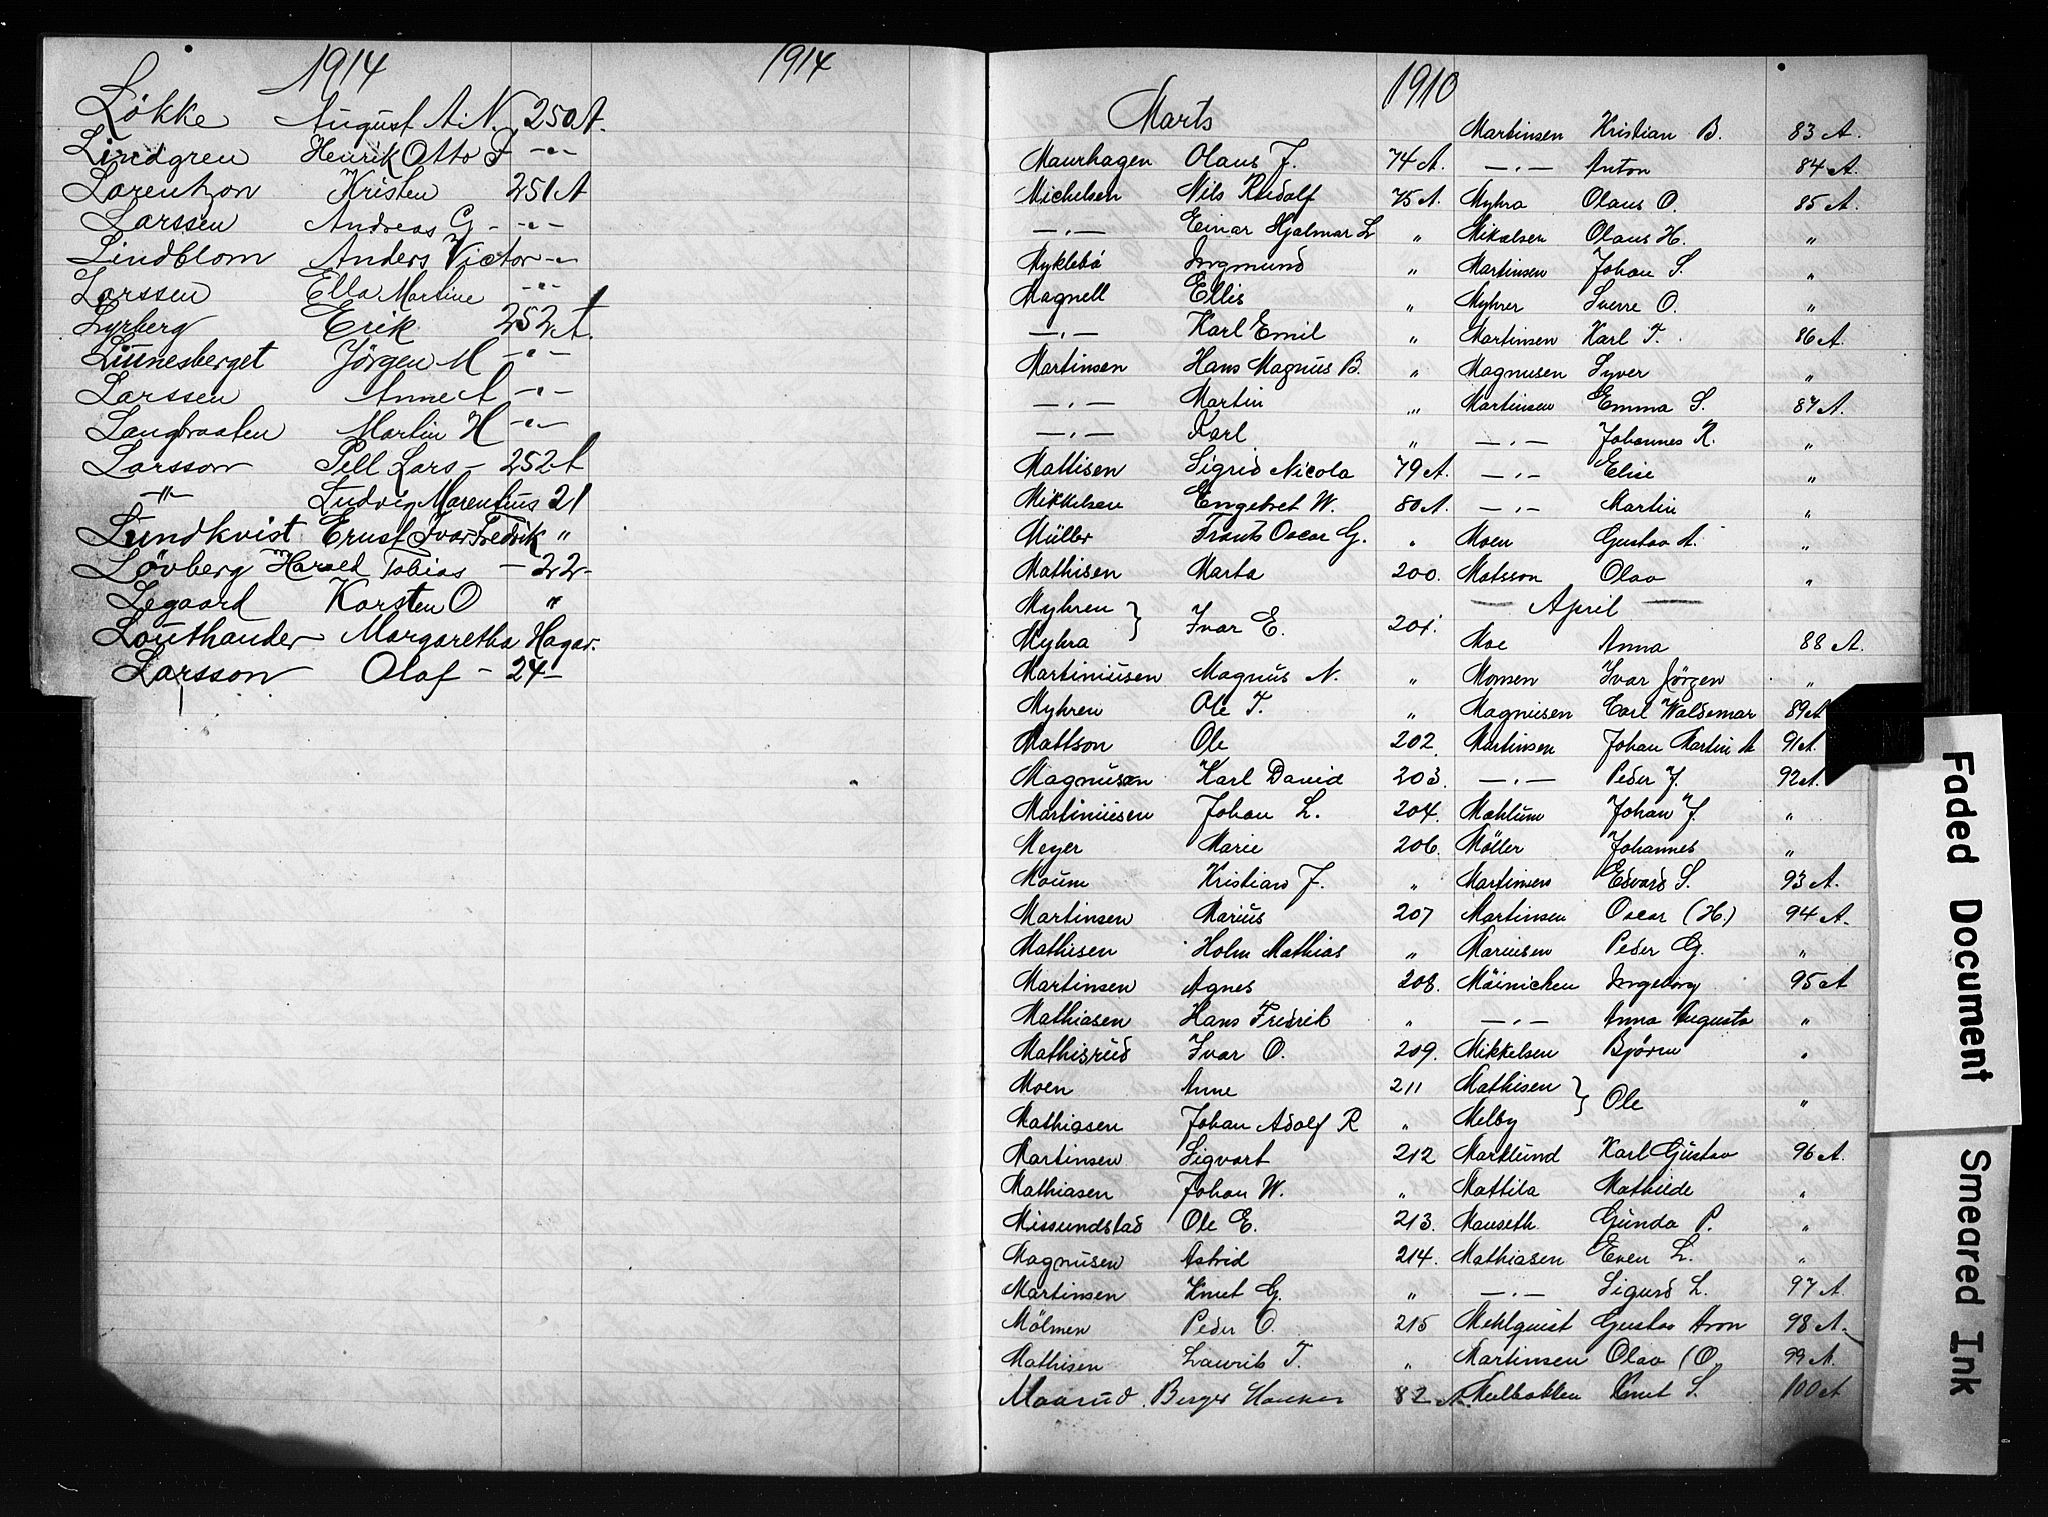 1914 1914
Løkke August A. N. 250 A.
Lindgren Henrik Otto F -"-
Lorentzon Kristen 251 A
Larssen Andreas G - -"-
Lindblom Anders Victor -"-
Larssen Ella Martine -"-
Lyrberg Erik 252 A.
Linnesberget Jörgen M -"-
Larssen Anne A -"-
Langbraaten Martin H -"-
Larsson Pell Lars - 252 A
-"- Ludvig Marentius 21
Lundkvist Ernst Ivar Fredrik "
Løvberg Harald Tobias - 22 -
Legaard Karsten O "
Louthander Margaretha Hagar.
Larsson Olaf - 24 -
1910
Marts
Maurhagen Olaus J. 74 A.
Michelsen Nils Rudolf 75 A.
—"— Einar Hjalmar L "
Myklebö Ingmund "
Magnell Ellis "
—"— Karl Emil "
Martinsen Hans Magnus B. "
—"— Martin "
—"— Karl "
Mattisen Sigrid Nicola 79 A.
Mikkelsen Engebret W. 80 A.
Müller Frants Oscar G. "
Mathisen Marta 200.
Myhren } Ivar E. 201.
Myhra
Martiniusen Magnus N. "
Myhren Ole T. "
Mattson Ole 202.
Magnuson Karl David 203.
Martiniusen Johan L. 204.
Meyer Marie 206.
Moum Kristian J. "
Martinsen Marius 207
Mathisen Holm Mathias "
Martinsen Agnes 208.
Mathiasen Hans Fredrik "
Mathisrud Ivar O. 209.
Moen Anne 211
Mathiasen Johan Adolf R "
Martinsen Sigvart 212
Mathiasen Johan W. "
Missundstad Ole E. 213.
Magnusen Astrid 214.
Martinsen Knut G. "
Mölmen Peder O. 215
Mathisen Laurits T. "
Maarud Berger Haukner 82 A.
Martinsen Kristian B. 83 A.
—"— Anton 84 A.
Myhra Olaus O. 85 A.
Mikalsen Olaus H. "
Martinsen Johan S. "
Myhrer Sverre O. "
Martinsen Karl T. 86 A.
Magnusen Syver "
Martinsen Emma S. 87 A.
—"— Johannes K. "
—"— Elise "
—"— Martin "
Moen Gustav A. "
Matsson Olav "
April
Moe Anna 88 A.
Momen Ivar Jörgen "
Magnusen Carl Waldemar 89 A
Martinsen Johan Martin A 91 A.
—"— Peder J. 92 A.
Mæhlum Johan J. "
Möller Johannes "
Martinsen Edvard S. 93 A.
Martinsen Oscar (H.) 94 A.
Mariusen Peder G. "
Möinichen Ingeborg 95 A
—"— Anna Augusta "
Mikkelsen Bjørn "
Mathisen } Ole "
Melby
Marklund Karl Gustav 96 A.
Mattila Mathilde "
Mauseth Gunda P. "
Mathiasen Even L. "
—"— Sigurd L. 97 A.
Mehlquist Gustav Aron 98 A.
Martinsen Olav (O. 99 A.
Melbakken Knut S. 100 A
M
Faded Document
Smeared Ink